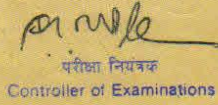 परीक्षा नियंत्रक
Controller of Examinations